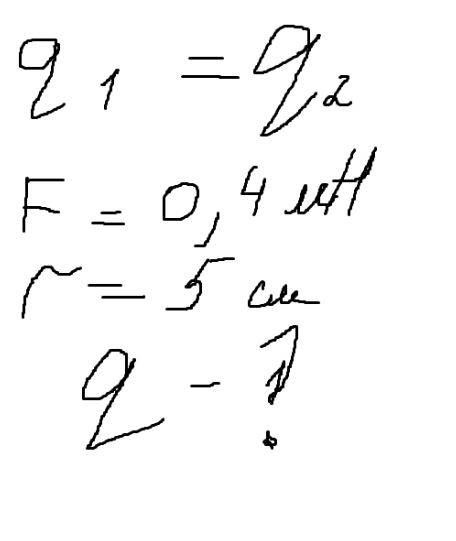 q₁ = q₂
F = 0,4 мН
r = 5 см
q - ?